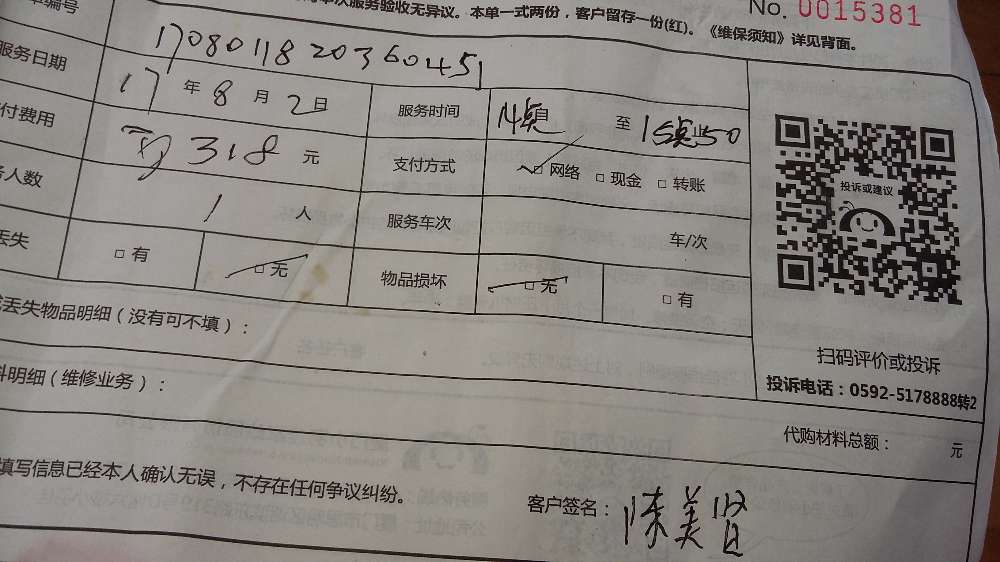 本次服务验收无异议。本单一式两份，客户留存一份(红)。《维保须知》详见背面。
No. 0015381
单编号 1708011820360451
服务日期 17 年 8 月 2 日 服务时间 至
付费用 318 元 支付方式 □ 网络 □ 现金 □ 转账
务人数 1 人 服务车次 车/次
丢失 □ 有 □ 无 物品损坏 □ 无 □ 有
丢失物品明细（没有可不填）：
料明细（维修业务）：
投诉或建议
扫码评价或投诉
投诉电话：0592-5178888转2
代购材料总额： 元
填写信息已经本人确认无误，不存在任何争议纠纷。
客户签名：陈美